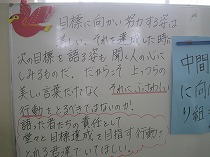 目標に向かい努力する姿は
しい。それを達成した時に
次の目標を語る姿も聞く人の心に
しみるものだ。だからって上っつらの
美しい言葉だけでなく それにふさわしい
行動をとるべきではないのか!
語った者たちの責任として
堂々と目標達成を目指す行動に
とれる者達でいてほしい。
中間
に向
り組